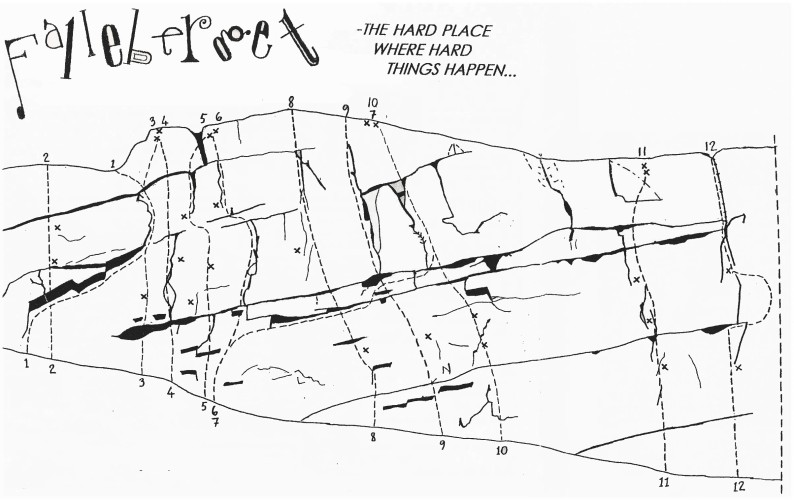 Falleberget
-THE HARD PLACE
WHERE HARD
THINGS HAPPEN...
2
1
3 4
5 6
8
9
10
7
11
12
1
2
3
4
5
6
7
8
9
10
11
12